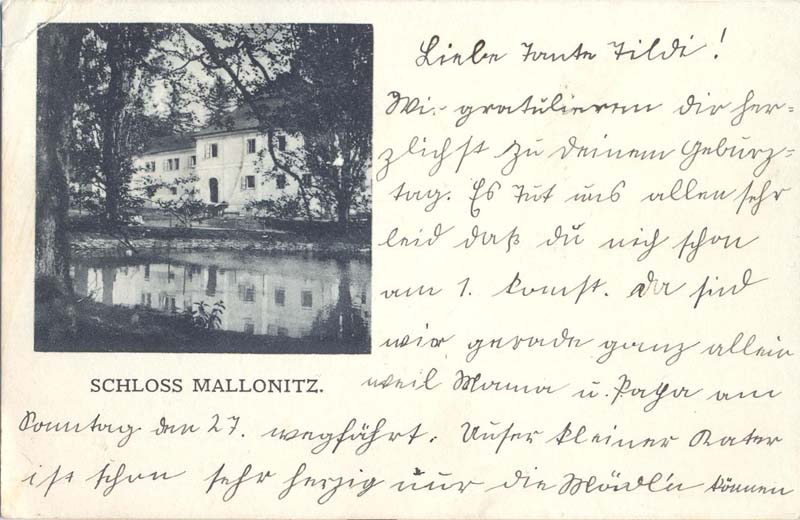 Liebe Tante Tildi!
Wir gratulieren dir her=
zlichst zu deinem Geburz=
tag. Es tut uns allen sehr
leid daß du nich schon
am 1. komst. Da sind
wir gerade ganz allein
weil Mama u. Papa am
SCHLOSS MALLONITZ.
Sonntag den 27. wegfährt. Unser kleiner Kater
ist schon sehr herzig nur die Mädln können